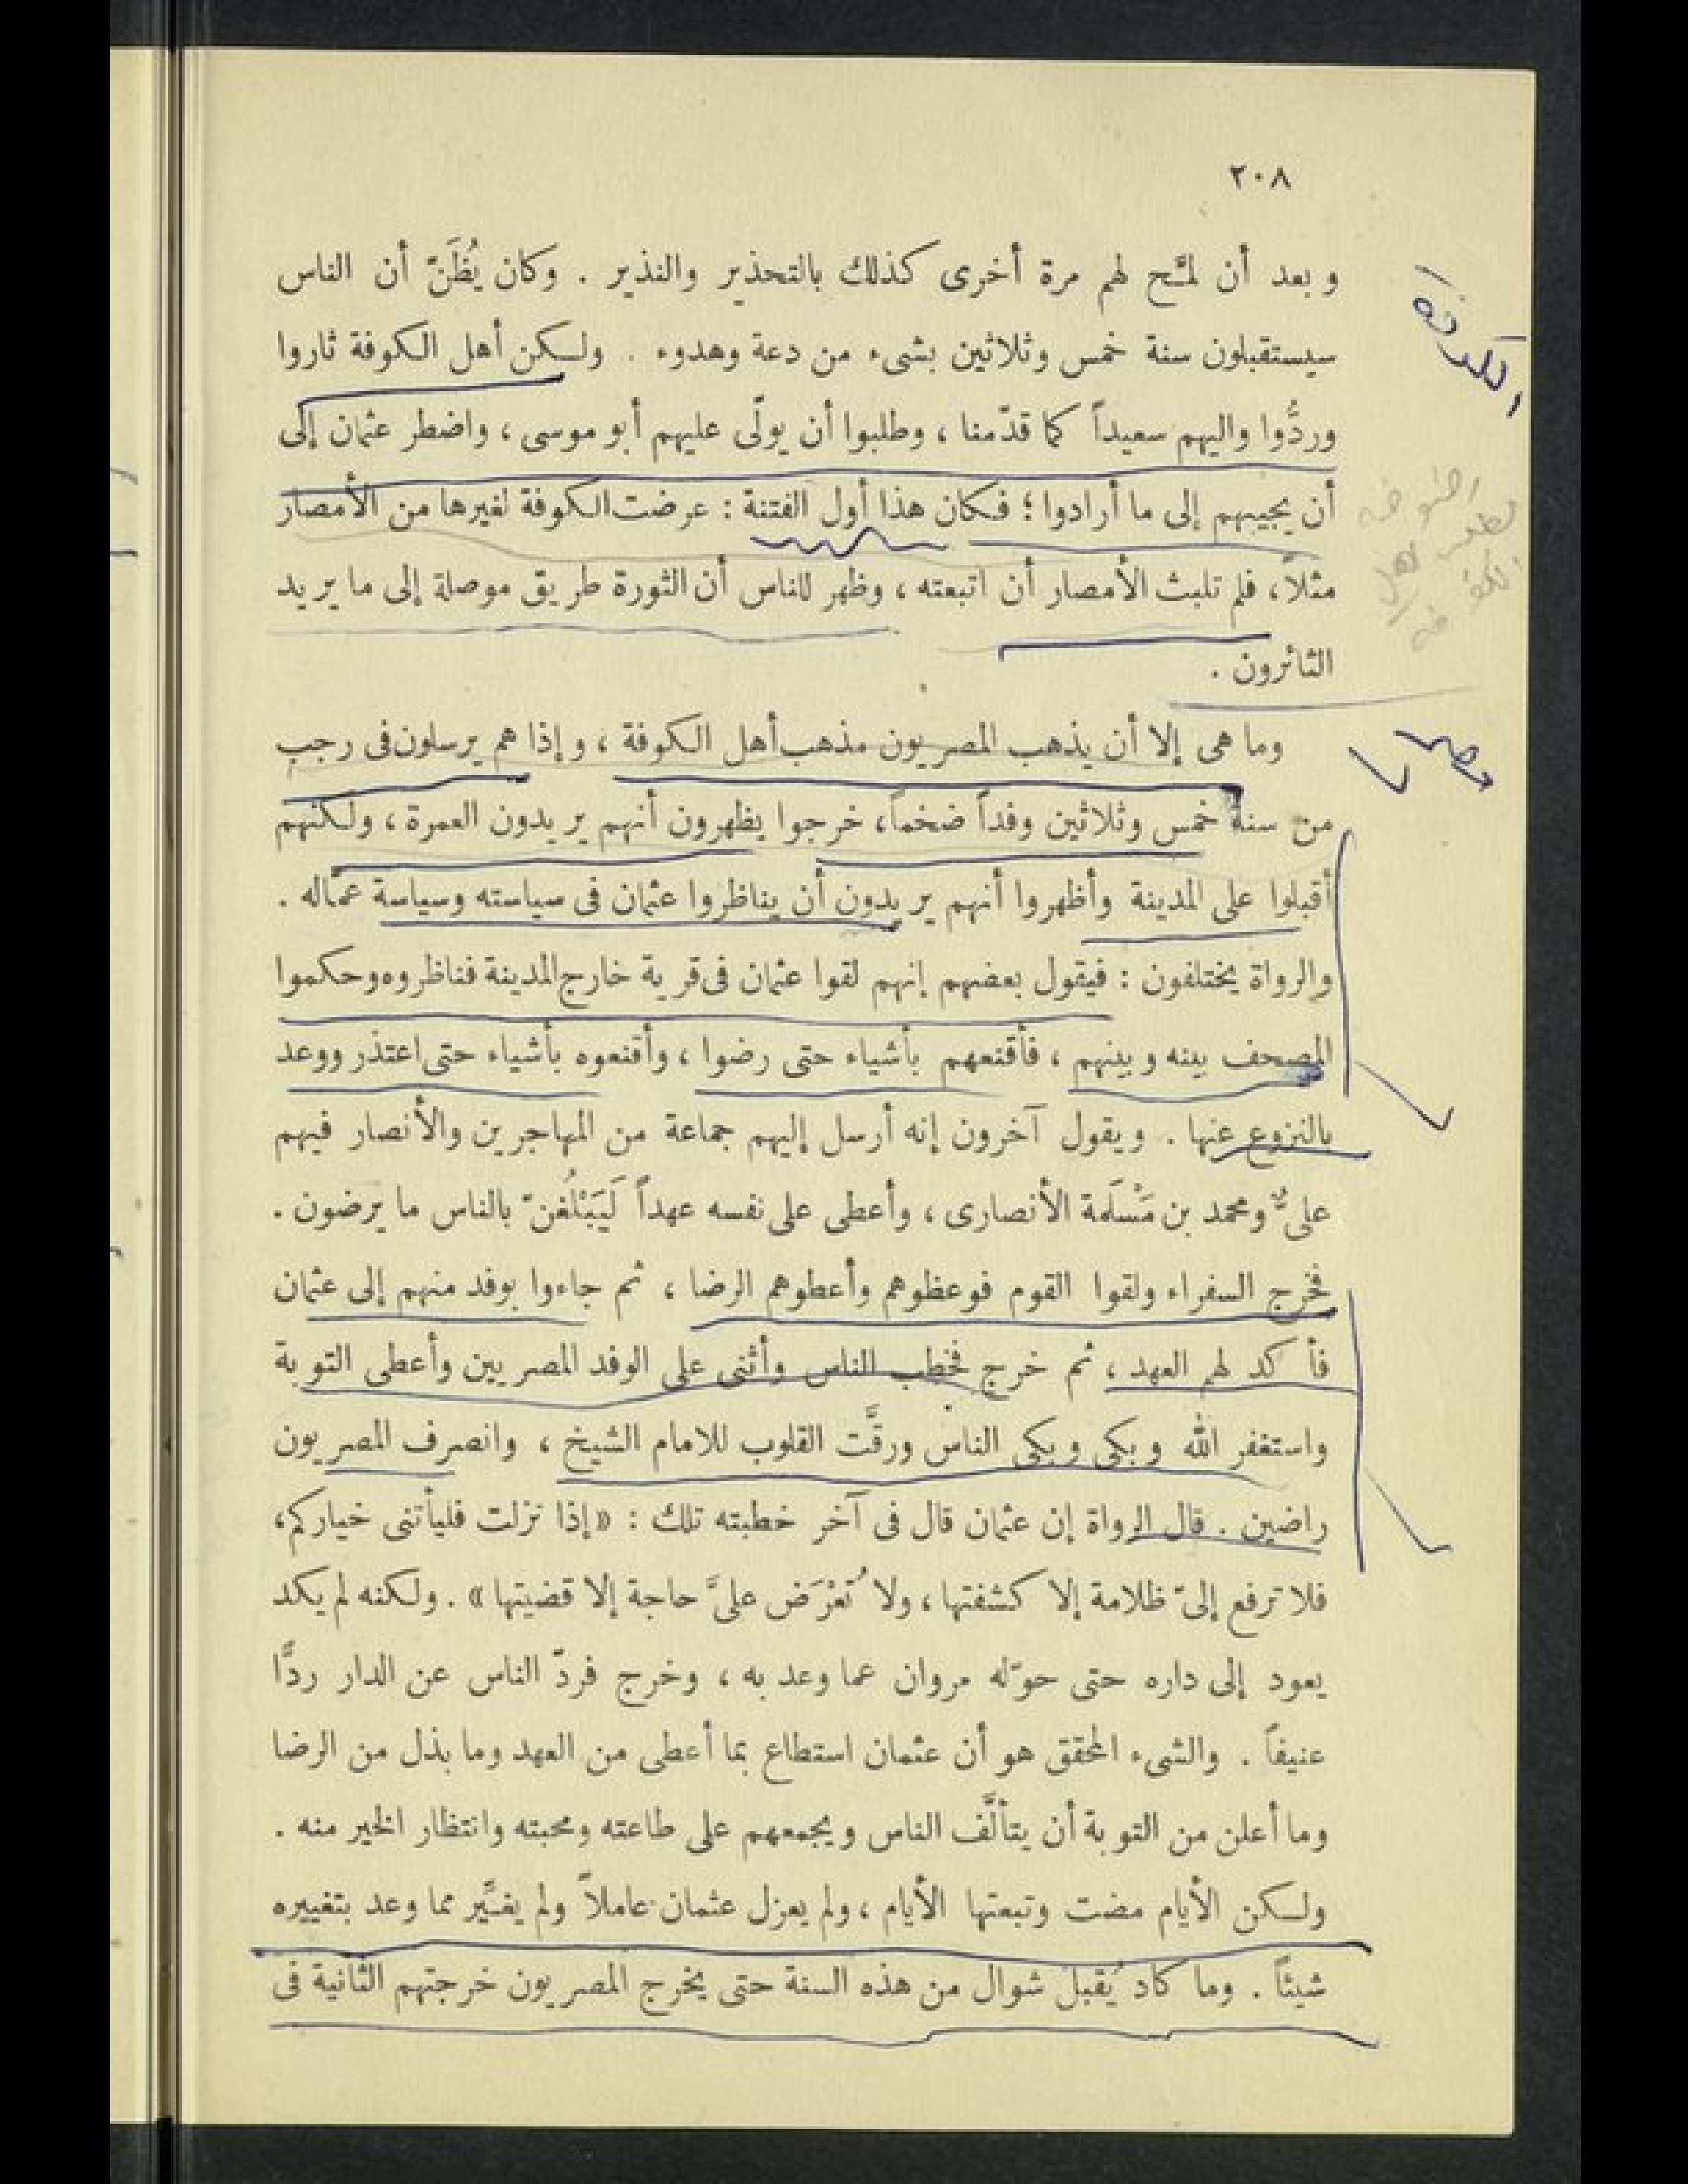 ٢٠٨
وبعد أن لمّح لهم مرة أخرى كذلك بالتحذير والنذير . وكان يُظَنّ أن الناس
سيستقبلون سنة خمس وثلاثين بشىء من دعة وهدوء . ولكن أهل الكوفة ثاروا
وردُّوا واليهم سعيداً كما قدّمنا ، وطلبوا أن يولّى عليهم أبو موسى ، واضطر عثمان إلى
أن يجيبهم إلى ما أرادوا ؛ فكان هذا أول الفتنة : عرضت الكوفة لغيرها من الأمصار
مثلاً، فلم تلبث الأمصار أن اتبعته ، وظهر للناس أن الثورة طريق موصلة إلى ما يريد
الثائرون .
وما هى إلا أن يذهب المصريون مذهب أهل الكوفة ، وإذا هم يرسلون فى رجب
من سنة خمس وثلاثين وفداً ضخماً، خرجوا يظهرون أنهم يريدون العمرة ، ولكنهم
أقبلوا على المدينة وأظهروا أنهم يريدون أن يناظروا عثمان فى سياسته وسياسة عمّاله .
والرواة يختلفون : فيقول بعضهم إنهم لقوا عثمان فى قرية خارج المدينة فناظروه وحكموا
المصحف بينه وبينهم ، فأقنعهم بأشياء حتى رضوا ، وأقنعوه بأشياء حتى اعتذر ووعد
بالنزوع عنها . ويقول آخرون إنه أرسل إليهم جماعة من المهاجرين والأنصار فيهم
علىٌّ ومحمد بن مَسْلَمة الأنصارى ، وأعطى على نفسه عهداً لَيَبْلُغنّ بالناس ما يرضون .
فخرج السفراء ولقوا القوم فوعظوهم وأعطوهم الرضا ، ثم جاءوا بوفد منهم إلى عثمان
فأكد لهم العهد ، ثم خرج فخطب الناس وأثنى على الوفد المصريين وأعطى التوبة
واستغفر الله وبكى وبكى الناس ورقَّت القلوب للامام الشيخ ، وانصرف المصريون
راضين . قال الرواة إن عثمان قال فى آخر خطبته تلك : «إذا نزلت فليأتنى خياركم،
فلا ترفع إلىّ ظلامة إلا كشفتها ، ولا تُعْرَض علىَّ حاجة إلا قضيتها» . ولكنه لم يكد
يعود إلى داره حتى حوّله مروان عما وعد به ، وخرج فردّ الناس عن الدار ردًّا
عنيفاً . والشىء المحقق هو أن عثمان استطاع بما أعطى من العهد وما بذل من الرضا
وما أعلن من التوبة أن يتألَّف الناس ويجمعهم على طاعته ومحبته وانتظار الخير منه .
ولكن الأيام مضت وتبعتها الأيام ، ولم يعزل عثمان عاملاً ولم يغيِّر مما وعد بتغييره
شيئاً . وما كاد يُقبل شوال من هذه السنة حتى يخرج المصريون خرجتهم الثانية فى
الكوفة
مصر